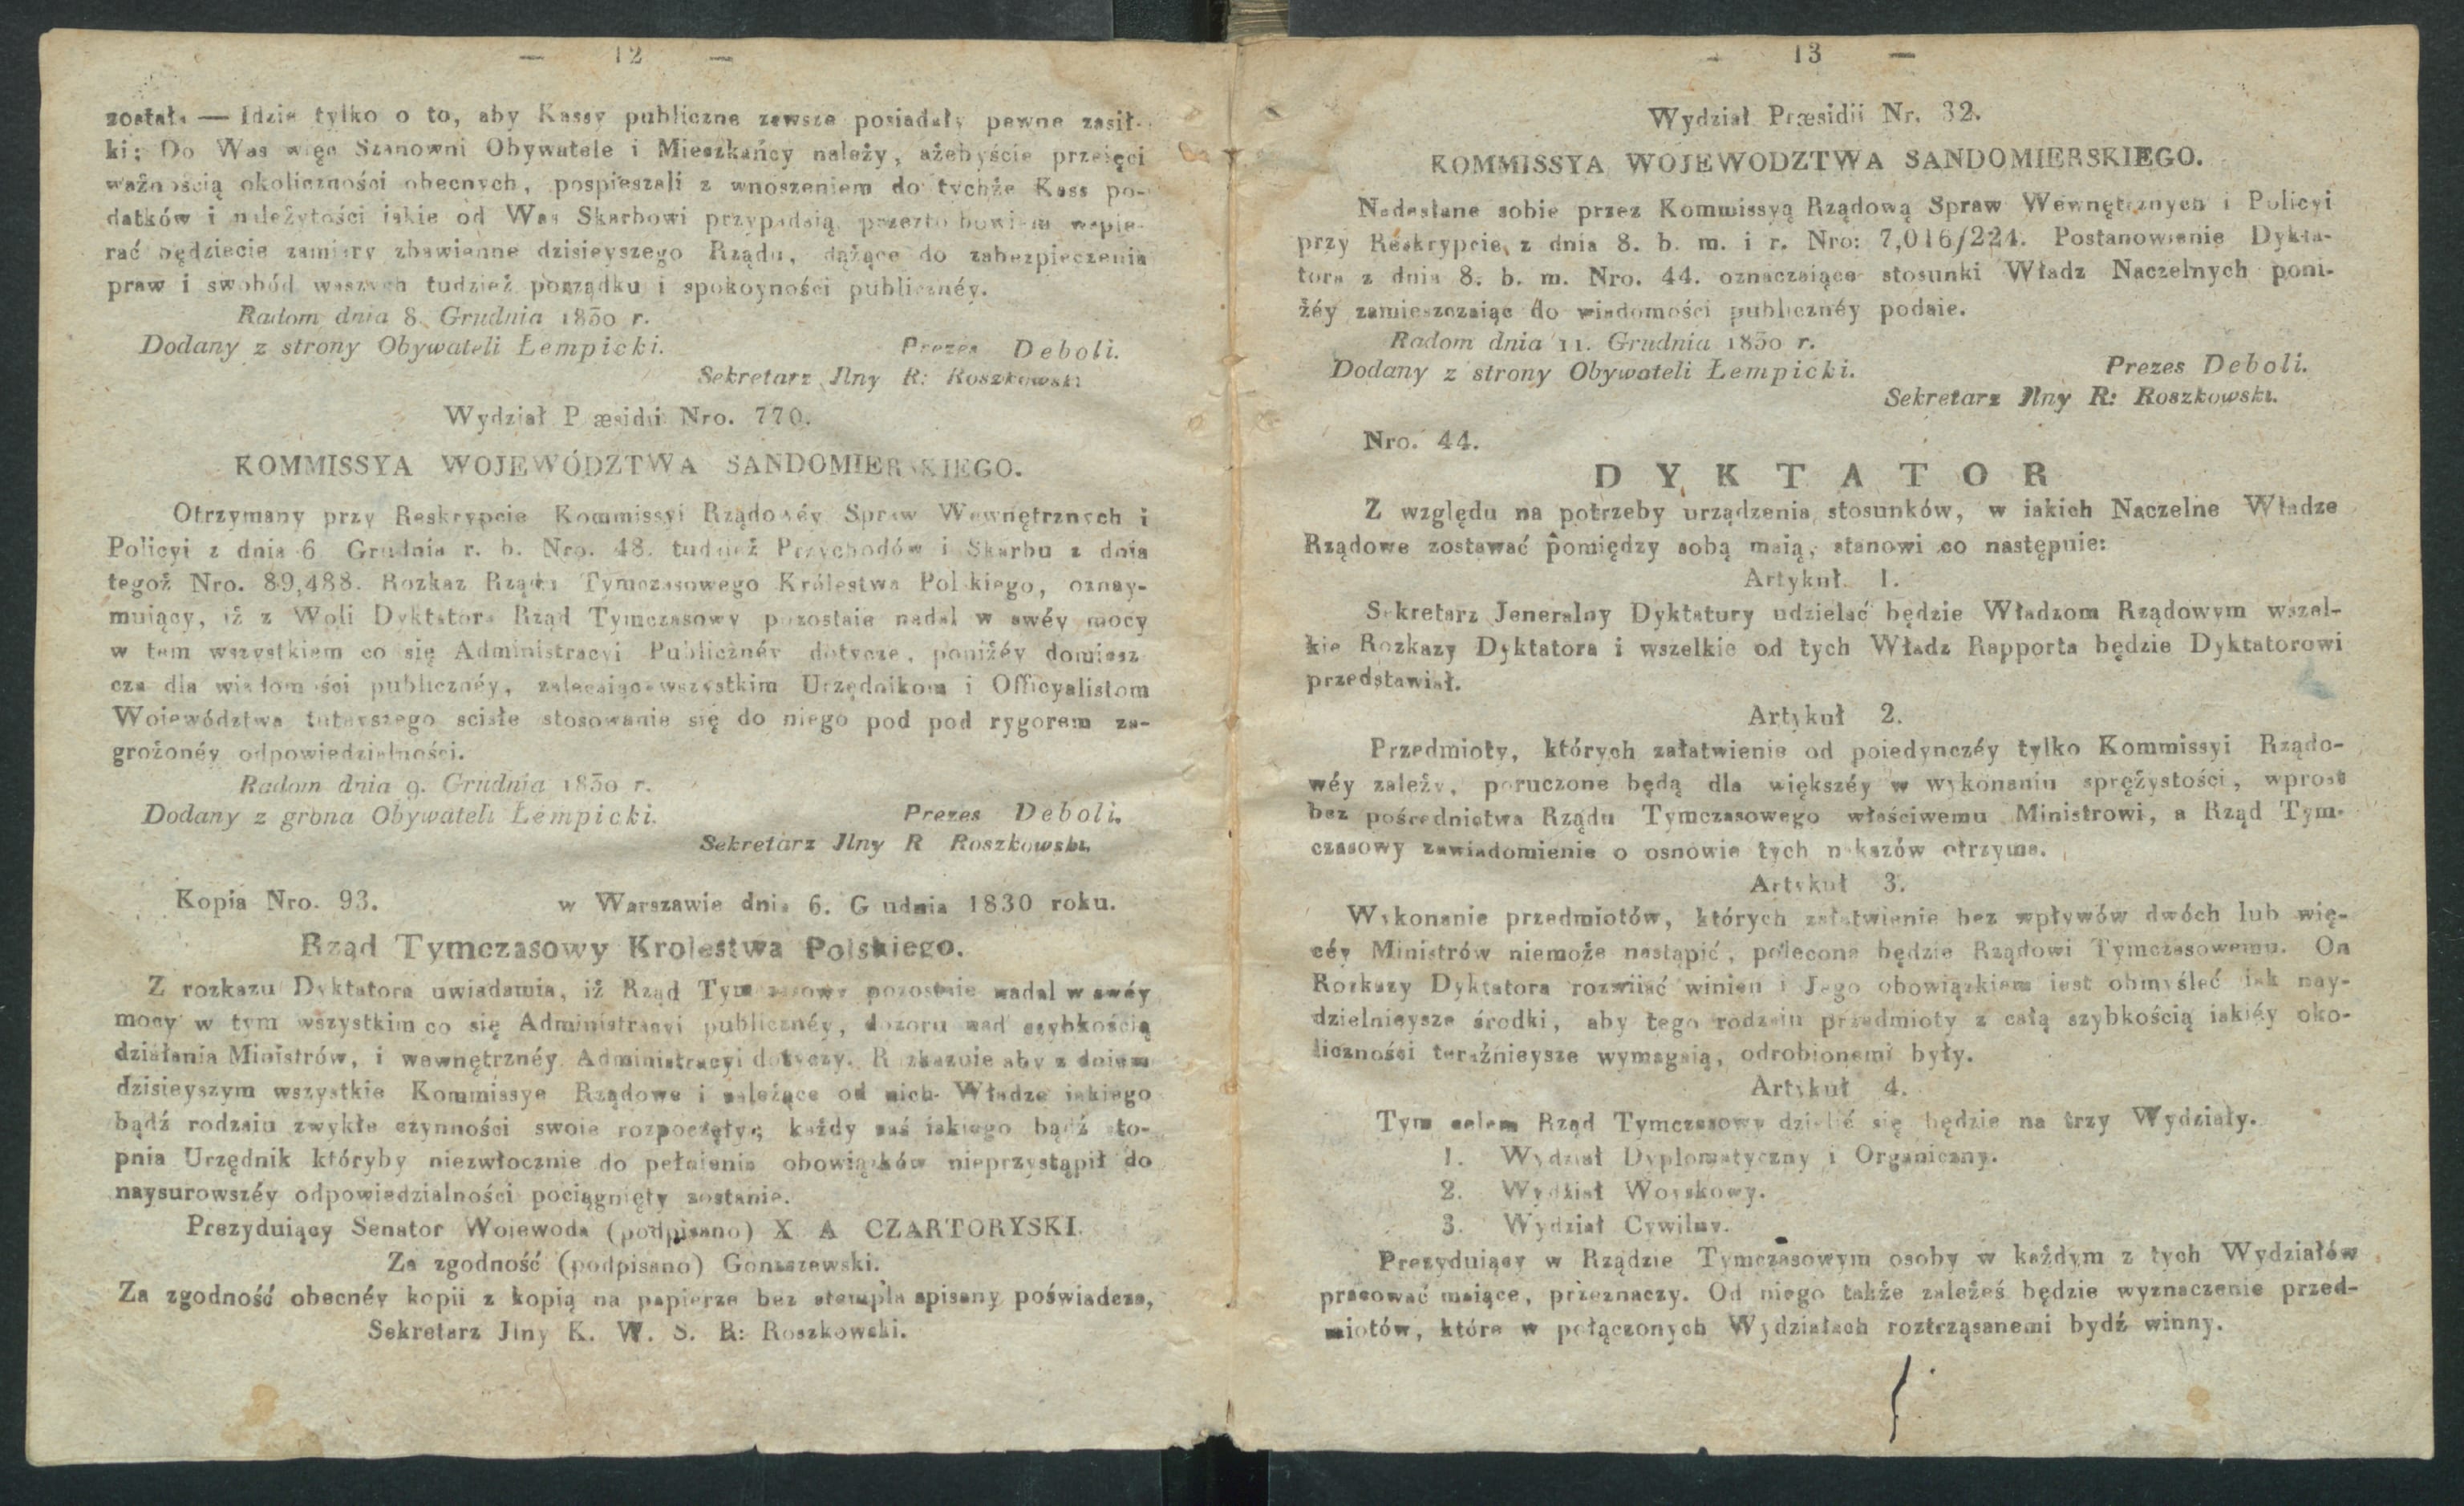 — 12 —
została — Idzie tylko o to, aby Kassy publiczne zawsze posiadały pewne zasił-
ki; Do Was więc Szanowni Obywatele i Mieszkańcy należy, ażebyście przeięci
ważnością okoliczności obecnych, pospieszali z wnoszeniem do tychże Kass po-
datków i należytości iakie od Was Skarbowi przypadaią, przezto bowiem wspie-
rać będziecie zamiary zbawienne dzisieyszego Rządu, dążące do zabezpieczenia
praw i swobód waszych tudzież porządku i spokoyności publicznéy.
Radom dnia 8. Grudnia 1830 r.
Dodany z strony Obywateli Łempicki. Prezes Deboli.
Sekretarz Jlny R: Roszkowski
Wydział Præsidii Nro. 770.
KOMMISSYA WOJEWÓDZTWA SANDOMIERSKIEGO.
Otrzymany przy Reskrypcie Kommissyi Rządowéy Spraw Wewnętrznych i
Policyi z dnia 6 Grudnia r. b. Nro. 48. tudzież Przychodów i Skarbu z dnia
tegoż Nro. 89,488. Rozkaz Rządu Tymczasowego Królestwa Polskiego, oznay-
muiący, iż z Woli Dyktatora Rząd Tymczasowy pozostaie nadal w swéy mocy
w tem wszystkiem co się Administracyi Publicznéy dotycze, poniżéy domiesz
cza dla wiadomości publicznéy, zalecaiąc wszystkim Urzędnikom i Officyalistom
Województwa tuteyszego scisłe stosowanie się do niego pod pod rygorem za-
grożonéy odpowiedzialności.
Radom dnia 9. Grudnia 1830 r.
Dodany z grona Obywateli Łempicki. Prezes Deboli.
Sekretarz Jlny R Roszkowski.
Kopia Nro. 93. w Warszawie dnia 6. Grudnia 1830 roku.
Rząd Tymczasowy Krolestwa Polskiego.
Z rozkazu Dyktatora uwiadamia, iż Rząd Tymczasowy pozostaie nadal w swéy
mocy w tym wszystkim co się Administracyi publicznéy, dozoru nad szybkością
działania Ministrów, i wewnętrznéy Administracyi dotyczy. Rozkazuie aby z dniem
dzisieyszym wszystkie Kommissye Rządowe i należące od nich Władze iakiego
bądź rodzaiu zwykłe czynności swoie rozpoczęły; każdy zaś iakiego bądź sto-
pnia Urzędnik któryby niezwłocznie do pełnienia obowiązków nieprzystąpił do
naysurowszéy odpowiedzialności pociągnięty zostanie.
Prezyduiący Senator Woiewoda (podpisano) X A CZARTORYSKI.
Za zgodność (podpisano) Gonszewski.
Za zgodność obecnéy kopii z kopią na papierze bez stempla spisany poświadcza,
Sekretarz Jlny K. W. S. R: Roszkowski.
— 13 —
Wydział Præsidii Nr. 32.
KOMMISSYA WOJEWODZTWA SANDOMIERSKIEGO.
Nadesłane sobie przez Kommissyą Rządową Spraw Wewnętrznych i Policyi
przy Reskrypcie z dnia 8. b. m. i r. Nro: 7,016/224. Postanowienie Dykta-
tora z dnia 8. b. m. Nro. 44. oznaczaiące stosunki Władz Naczelnych poni-
żéy zamieszczaiąc do wiadomości publicznéy podaie.
Radom dnia 11. Grudnia 1830 r.
Dodany z strony Obywateli Łempicki. Prezes Deboli.
Sekretarz Jlny R: Roszkowski.
Nro. 44.
DYKTATOR
Z względu na potrzeby urządzenia stosunków, w iakich Naczelne Władze
Rządowe zostawać pomiędzy sobą maią, stanowi co następuie:
Artykuł 1.
Sekretarz Jeneralny Dyktatury udzielać będzie Władzom Rządowym wszel-
kie Rozkazy Dyktatora i wszelkie od tych Władz Rapporta będzie Dyktatorowi
przedstawiał.
Artykuł 2.
Przedmioty, których załatwienie od poiedynczéy tylko Kommissyi Rządo-
wéy zależy, poruczone będą dla większéy w wykonaniu sprężystości, wprost
bez pośrednictwa Rządu Tymczasowego właściwemu Ministrowi, a Rząd Tym-
czasowy zawiadomienie o osnowie tych nakazów otrzyma.
Artykuł 3.
Wykonanie przedmiotów, których załatwienie bez wpływów dwóch lub wię-
céy Ministrów niemoże nastąpić, polecone będzie Rządowi Tymczasowemu. On
Rozkazy Dyktatora rozwiiać winien i Jego obowiązkiem iest obmyśleć iak nay-
dzielnieysze środki, aby tego rodzaiu przedmioty z całą szybkością iakiéy oko-
liczności teraźnieysze wymagaią, odrobionemi były.
Artykuł 4.
Tym celem Rząd Tymczasowy dzielić się będzie na trzy Wydziały.
1. Wydział Dyplomatyczny i Organiczny.
2. Wydział Woyskowy.
3. Wydział Cywilny.
Prezyduiący w Rządzie Tymczasowym osoby w każdym z tych Wydziałów
pracować maiące, przeznaczy. Od niego także zależeś będzie wyznaczenie przed-
miotów, które w połączonych Wydziałach roztrząsanemi bydź winny.